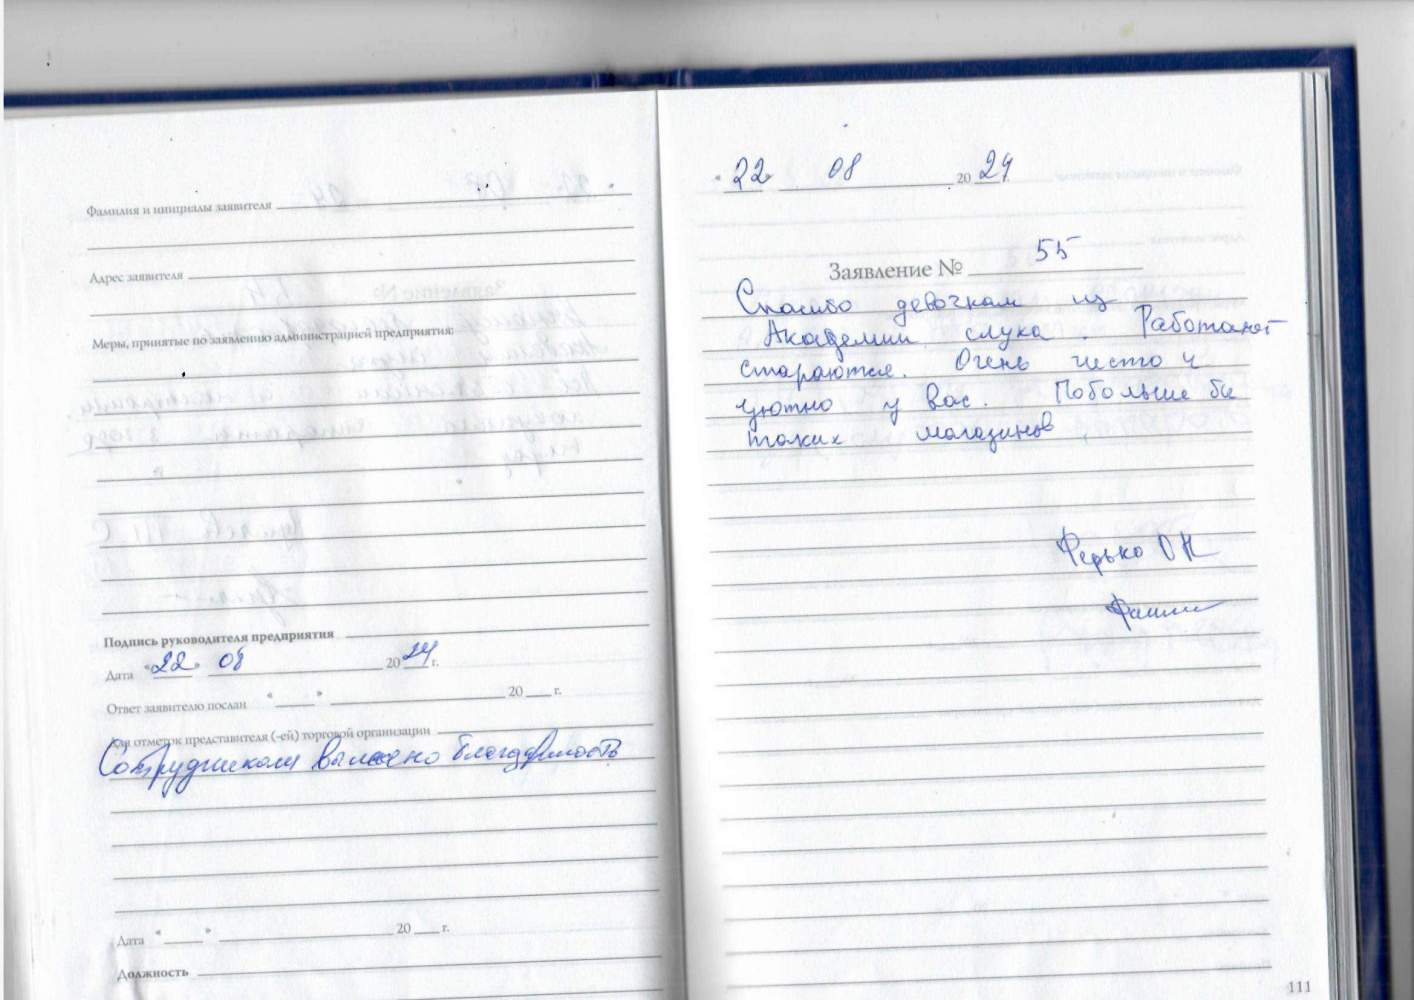 Фамилия и инициалы заявителя
Адрес заявителя
Меры, принятые по заявлению администрацией предприятия:
Подпись руководителя предприятия
Дата "22" 08 2024 г.
Ответ заявителю послан " " 20 г.
Для отметок представителя (-ей) торговой организации
Сотрудникам благодарность
Дата " " 20 г.
Должность
"22" 08 2024 г.
Заявление № 55
Спасибо девочкам из
Академии слуха. Работают
стараются. Очень чисто и
уютно у вас. Побольше бы
таких магазинов
Федько О Н
111